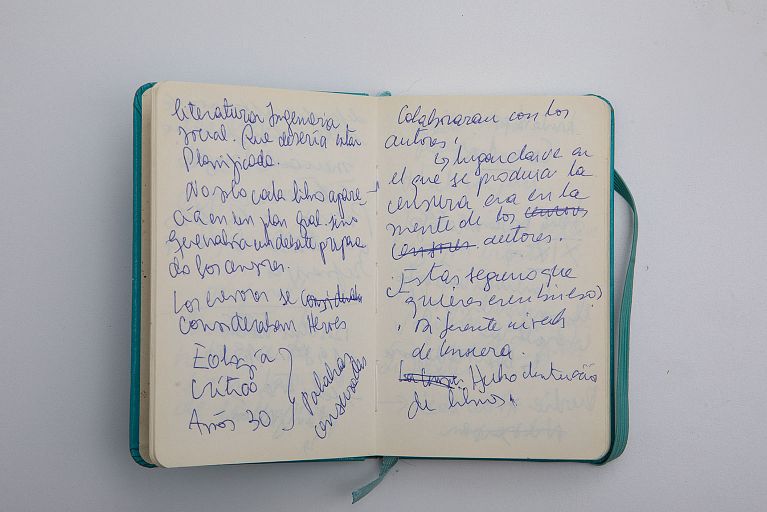 literatura Ingenieria
social. Que debería estar
Planificada.
No solo cada libro apare-
cía en un plan gral. sino
generaba un debate prepara
do los censores.
Los censores se
consideraban Heroes
Ecología
Crítica
Años 30
Palabras
censurades
Colaboraran con los
autores.
↳ lugar clave en
el que se producía la
censura era en la
mente de los censores
censores autores.
¿Estas seguro que
quieres escribir eso?
. Diferente nivels
de censura.
Hubo destrucción
de libros.